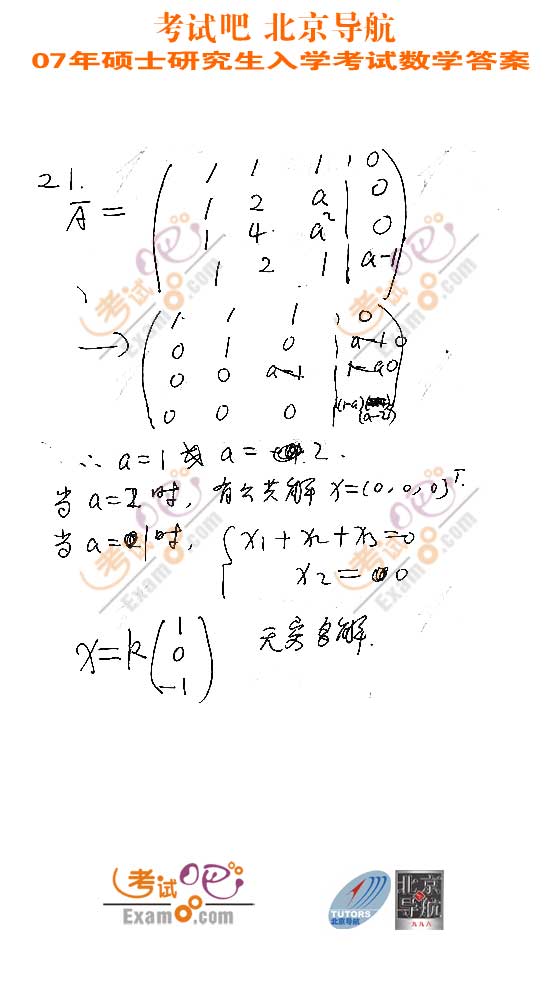 考试吧 北京导航
07年硕士研究生入学考试数学答案
21.
Ā = ( 1 1 1 | 0
1 2 a | 0
1 4 a² | 0
1 2 1 | a-1 )
→ ( 1 1 1 | 0
0 1 0 | 0
0 0 a-1 | 0
0 0 0 | )
∴ a=1 或 a= 2.
当 a=2 时, 有公共解 x=(0,0,0)ᵀ.
当 a=1 时, { x1+x2+x3=0
x2=0
x=k ( 1
0
-1 ) 无穷多解.
考试吧
Exam8.com
TUTORS
北京导航
北京
导航
九九八